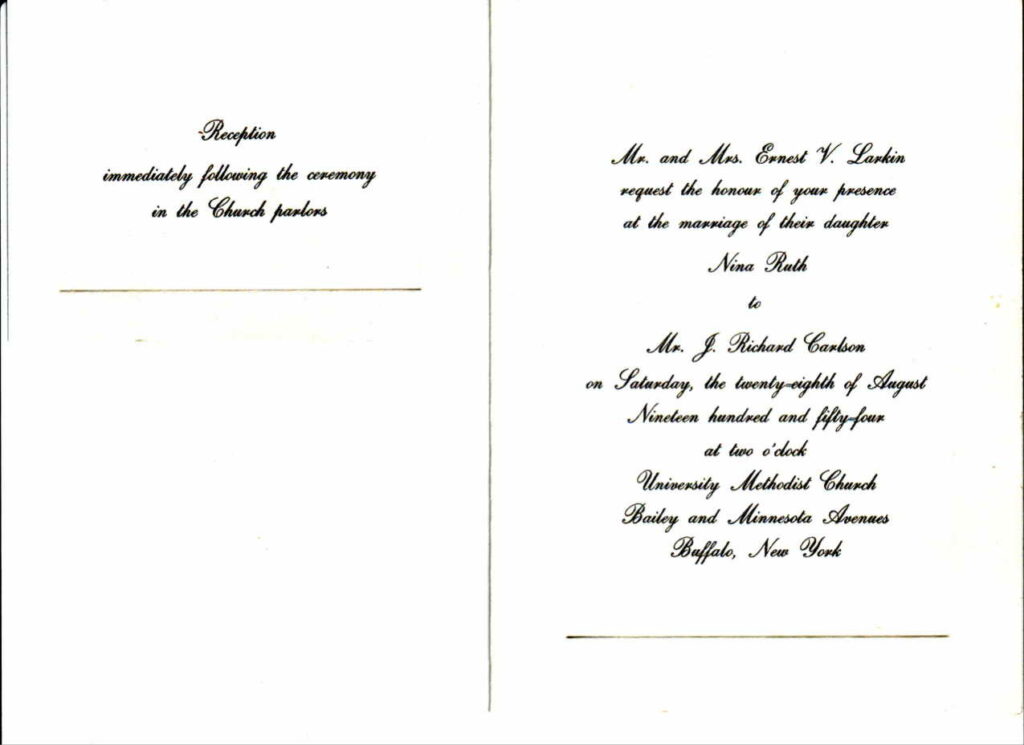 Reception
immediately following the ceremony
in the Church parlors
Mr. and Mrs. Ernest V. Larkin
request the honour of your presence
at the marriage of their daughter
Nina Ruth
to
Mr. J. Richard Carlson
on Saturday, the twenty-eighth of August
Nineteen hundred and fifty-four
at two o'clock
University Methodist Church
Bailey and Minnesota Avenues
Buffalo, New York